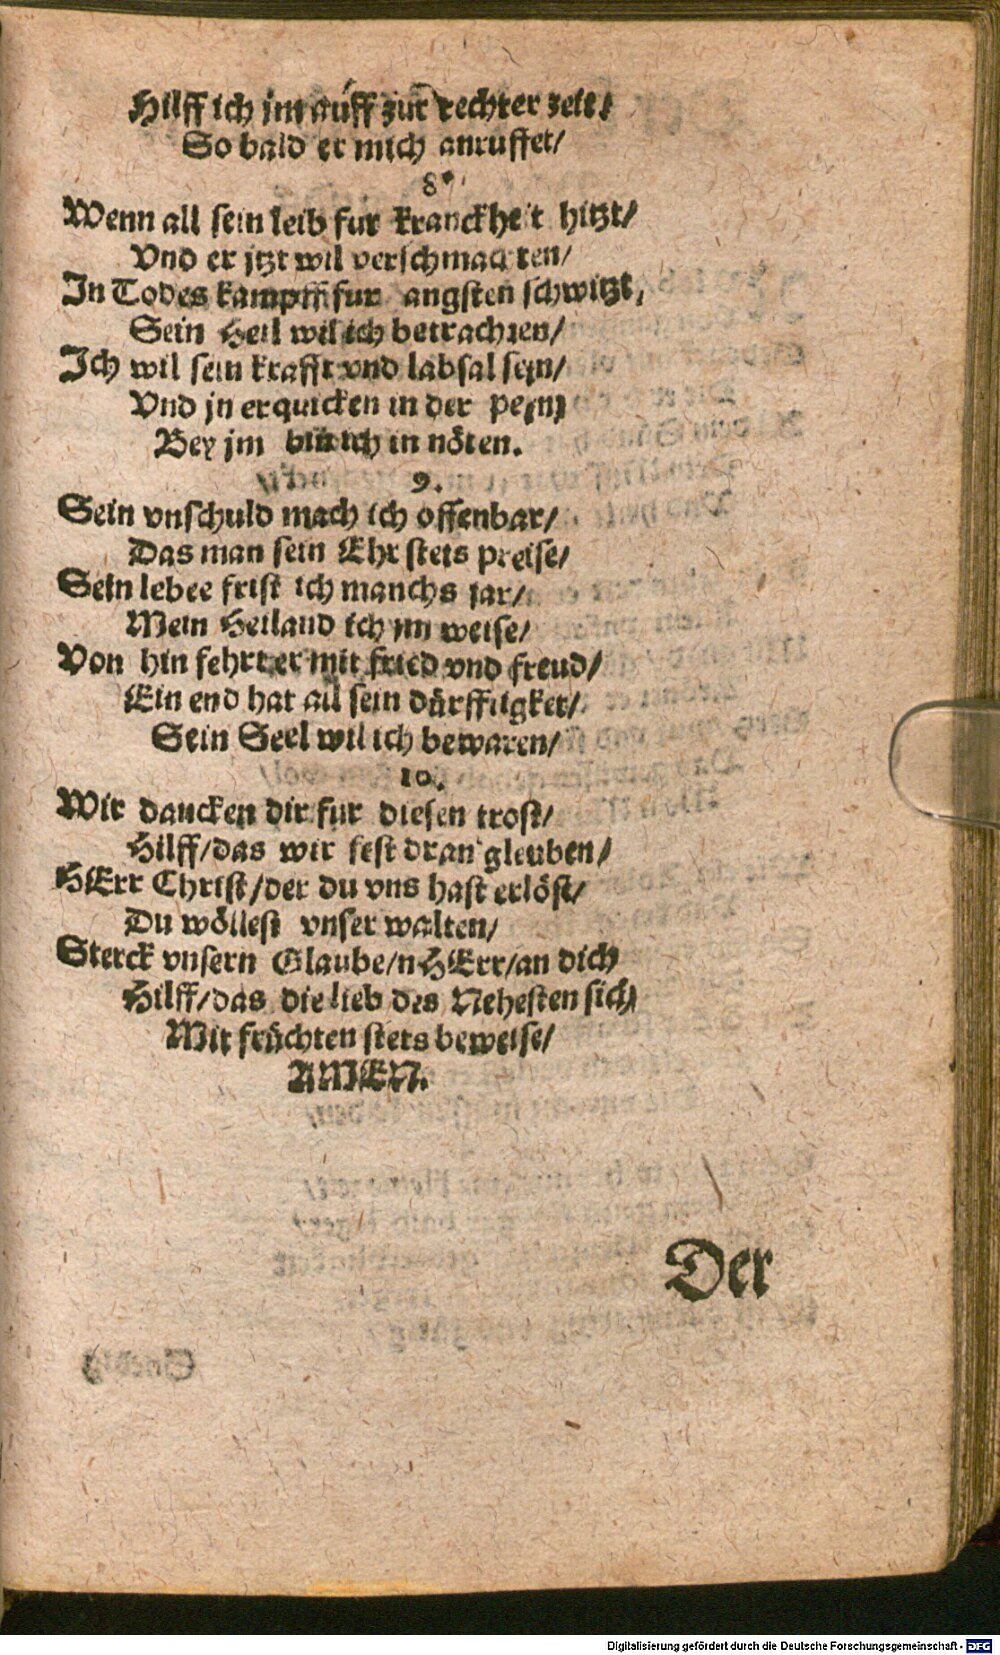 Hilff ich jm auff zur rechter zeit/
So bald er mich anruffet/
8.
Wenn all sein leib fur kranckheit hitzt/
Vnd er jtzt wil verschmachten/
In Todes kampff fur angsten schwitzt,
Sein Heil wil ich betrachten/
Ich wil sein krafft vnd labsal sein/
Vnd jn erquicken in der pein/
Bey jm bin ich in nöten.
9.
Sein vnschuld mach ich offenbar/
Das man sein Ehr stets preise/
Sein lebee frist ich manchs jar/
Mein Heiland ich jm weise/
Von hin fehrt er mit fried vnd freud/
Ein end hat all sein dürfftigket/
Sein Seel wil ich bewaren/
10.
Wir dancken dir fur diesen trost/
Hilff/das wir fest dran gleuben/
HErr Christ/der du vns hast erlöst/
Du wöllest vnser walten/
Sterck vnsern Glaube/n HErr/an dich
Hilff/das die lieb des Nehesten sich
Mit früchten stets beweise/
AMEN.
Der
Digitalisierung gefördert durch die Deutsche Forschungsgemeinschaft - DFG